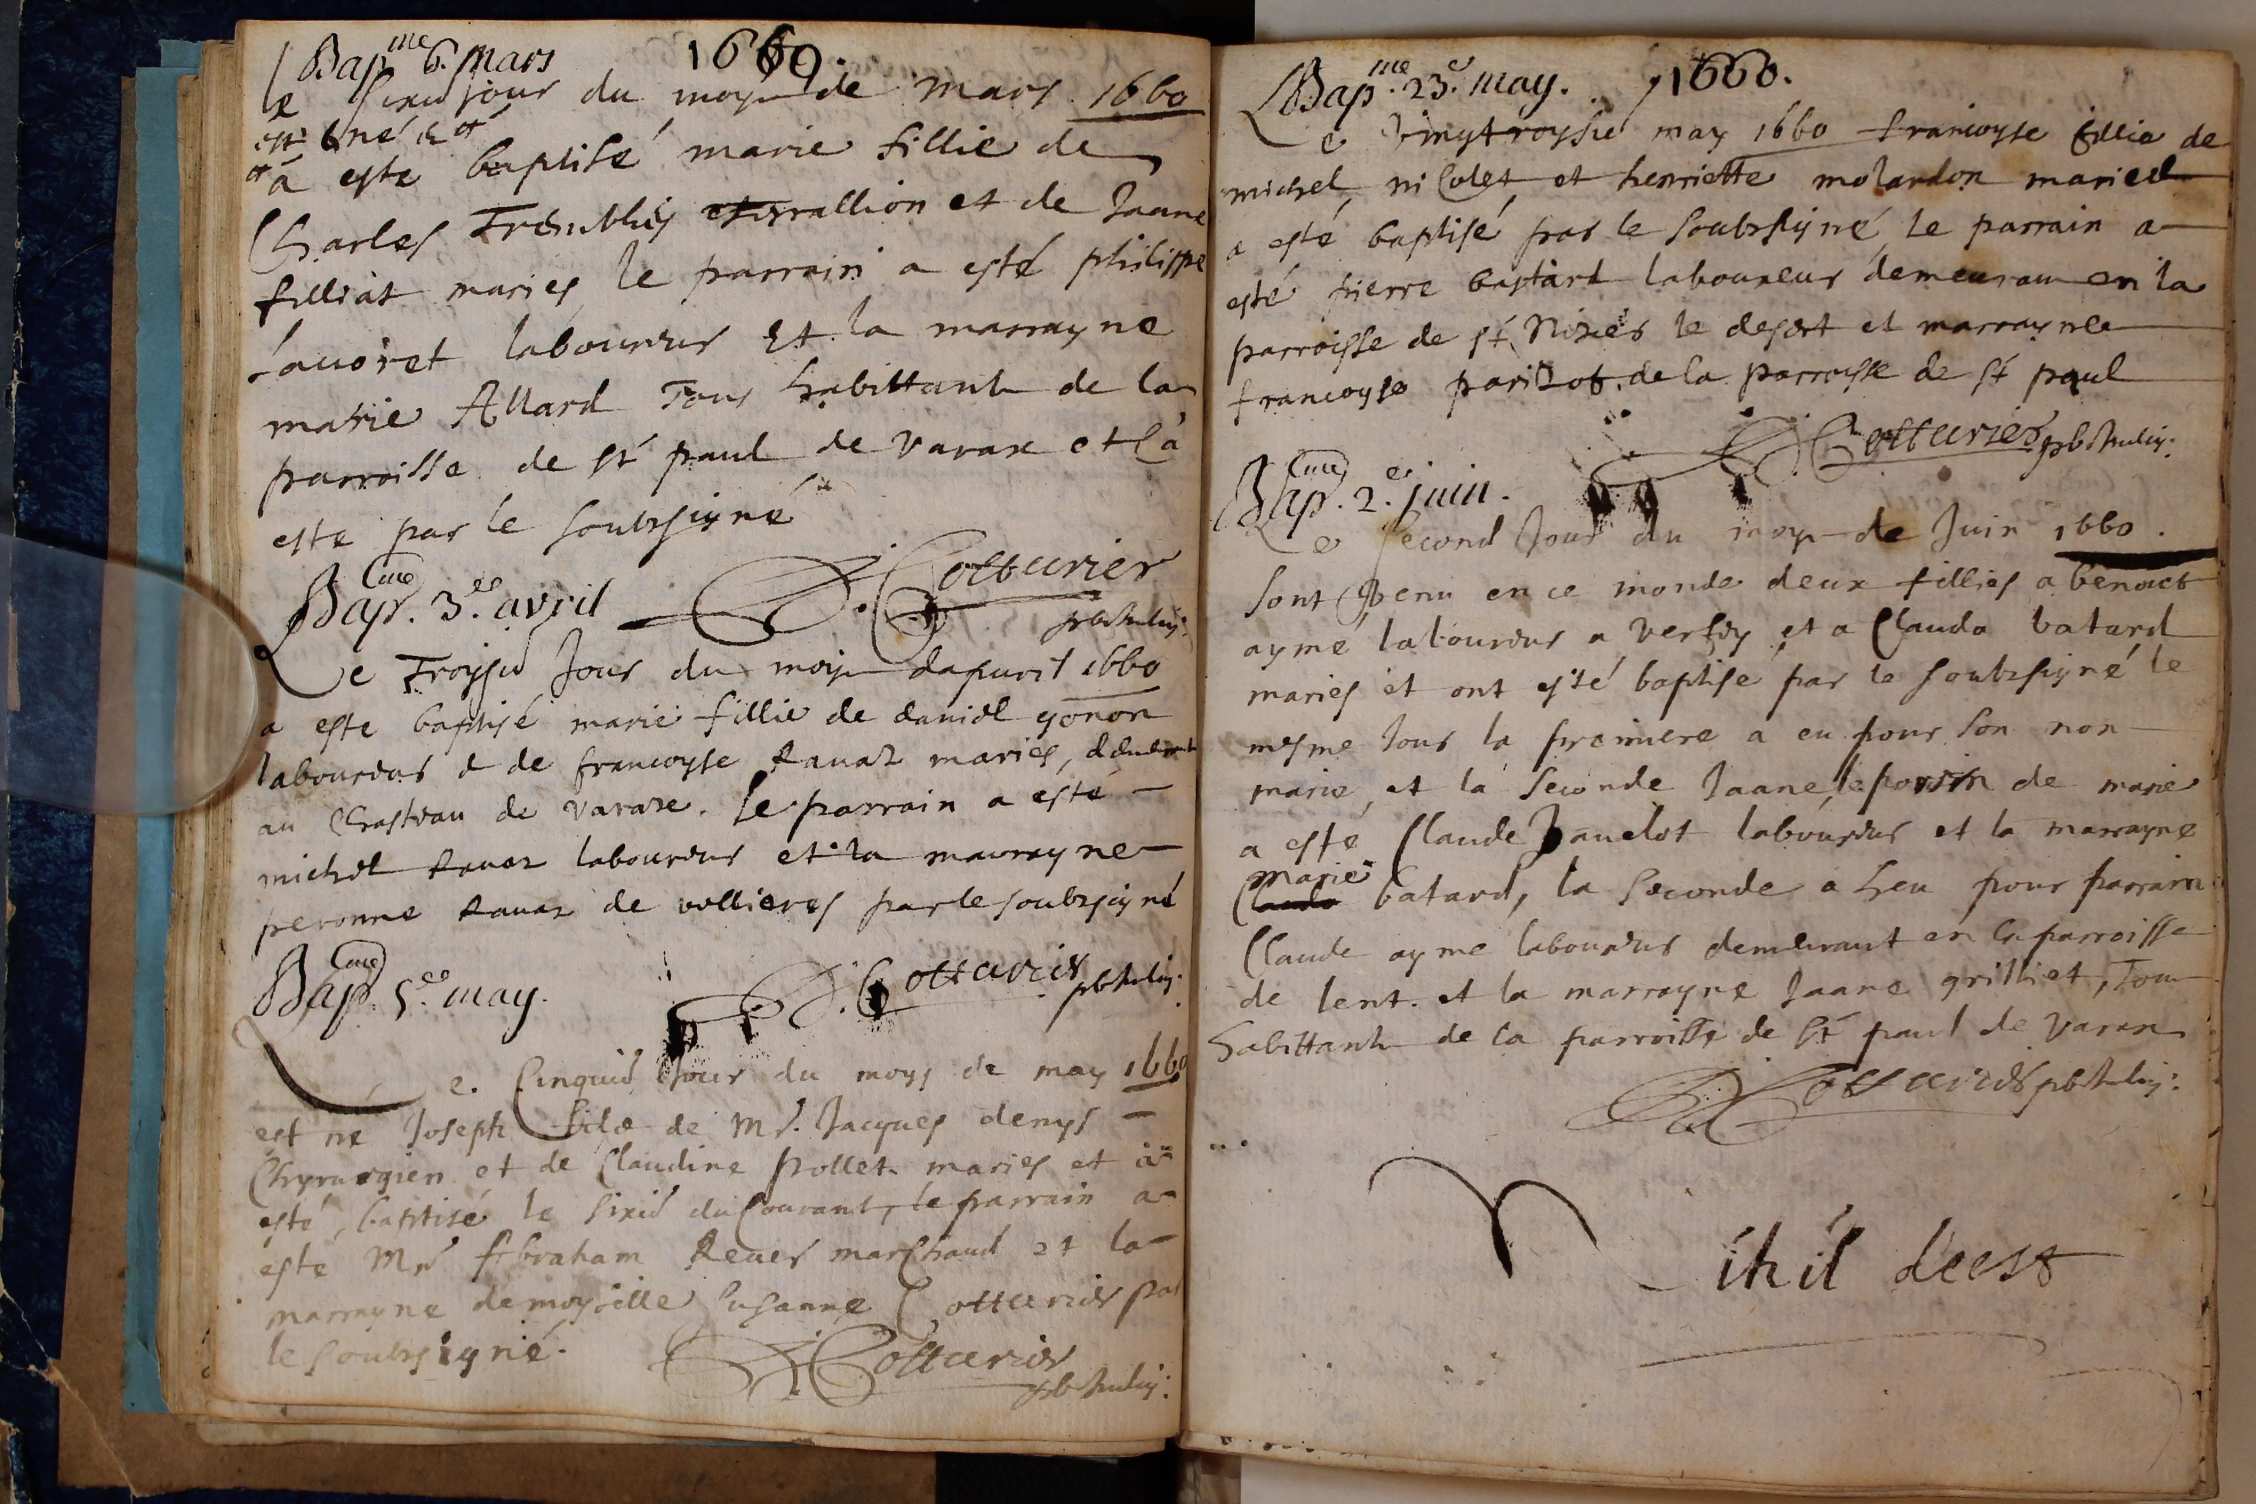 Bap.me 6. Mars 1660
Le sixie jour du moys de mars 1660
est né &
a este baptisé marie fillie de
Charles Tremblÿ et de Jaane
filliat maries, le parrain a esté philippe
laboureur Et la marrayne
marie Allard Tous habittants de la
parroisse de st paul de varax et l'a
este par le soubzsigné
Cotturier
Bap. 3.e avril
Le Troysie Jour du moys dapuril 1660
a este baptisé marie fillie de daniel gonon
laboureur & de francoyse Rauaz maries,
au Chasteau de varaxe. le parrain a esté
michel Rauaz laboureur et la marrayne
peronne Rauaz de vollieres par le soubzsigné
Cotturier
Bap. 5.e may.
Le. Cinquie Jour du moys de may 1660
est né Joseph filz de Mr. Jacques denys
Chyrurgien et de Claudine pollet maries et a
esté baptisé le sixie du Courant, le parrain a
esté Mr Abraham Reuer marchand et la
marrayne demoyselle susanne Cotturier par
le soubzsigné.
Cotturier
Bap.me 23.e may. 1660.
Le Vingt troysie may 1660 francoyse fillie de
michel, nicolet et henriette molardon maries
a esté baptisé par le soubzsigné, le parrain a
esté pierre bastard laboureur demeurant en la
parroisse de st Nizier le desert et marrayne
francoyse parizot de la parroisse de st paul
Cotturier
Bap. 2.e juin.
Le second Jour du moys de Juin 1660.
sont venu en ce monde deux fillies a benoict
aymé laboureur a Versey et a Clauda batard
maries et ont esté baptisé par le soubzsigné le
mesme Jour la premiere a eu pour son non
marie, et la seconde Jaane, le parrin de marie
a esté Claude Janelot laboureur et la marrayne
marie
Clauda batard, la seconde a heu pour parrain
Claude ayme laboureur demeurant en la parroisse
de lent. et la marrayne Jaane grilliet, Tous
habittants de la parroisse de st paul de varax
Cotturier
Nihil deest